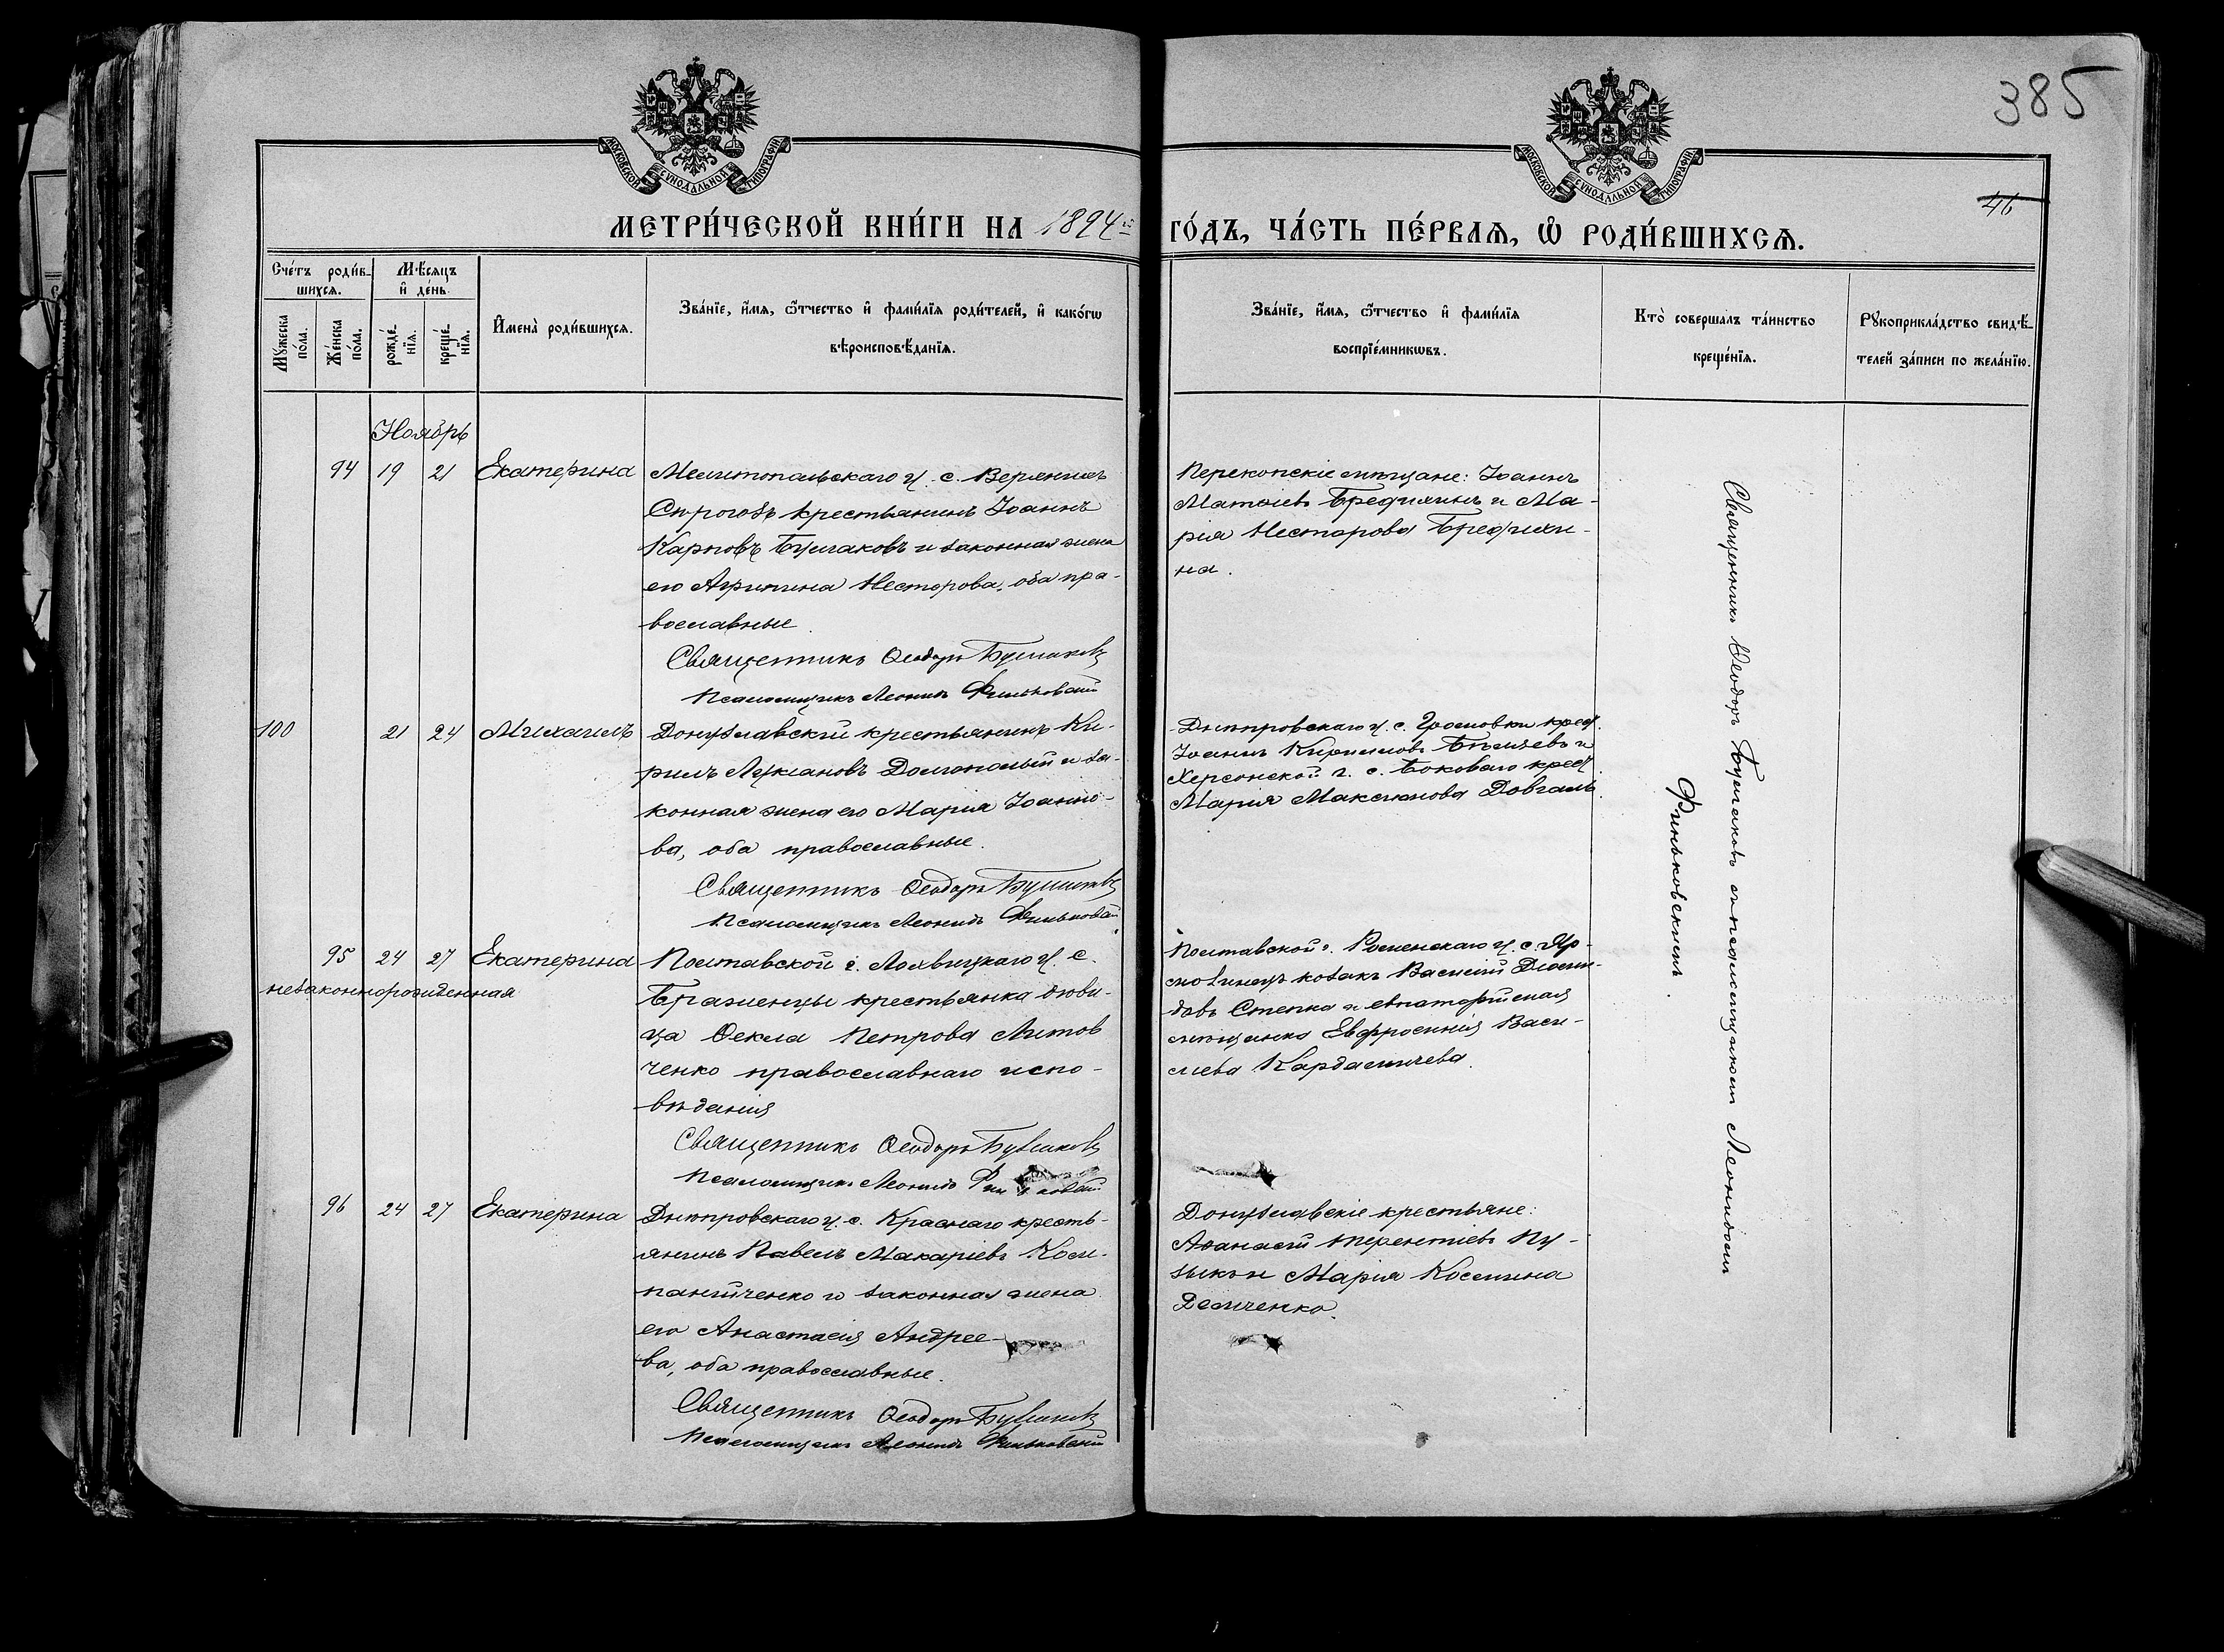 385
46
МОСКОВСКОЙ СѴНОДАЛЬНОЙ ТИПОГРАФІИ
МОСКОВСКОЙ СѴНОДАЛЬНОЙ ТИПОГРАФІИ
МЕТРИ́ЧЕСКОЙ КНИ́ГИ НА 1894й ГО́ДЪ, ЧА́СТЬ ПЕ́РВАѦ, Ѡ҆ РОДИ́ВШИХСѦ.
Сче́тъ роди́в-
шихсѧ.
Мꙋ́жеска
по́ла.
Же́нска
по́ла.
Мѣ́сяцъ
и҆ де́нь.
рожде́-
нїѧ.
креще́-
нїѧ.
И҆мена̀ роди́вшихсѧ.
Зва́нїе, и҆́мѧ, ѻ҆́тчество и҆ фами́лїѧ роди́телей, и҆ како́гѡ
вѣроисповѣ́данїѧ.
Зва́нїе, и҆́мѧ, ѻ҆́тчество и҆ фами́лїѧ
воспрїе́мникѡвъ.
Кто̀ соверша́лъ та́инство
креще́нїѧ.
Рꙋкоприкла́дство свидѣ́-
телей за́писи по жела́нїю.
Ноябрь
94 19 21 Екатерина
Мелитопольскаго у. с. Верхнихъ
Сѣрогозъ крестьянинъ Іоаннъ
Карповъ Булгаковъ и законная жена
его Агрипина Несторова, оба пра-
вославные.
Священникъ Ѳеодоръ Булгаковъ
Псаломщикъ Леонидъ Финьковскій
Перекопскіе мѣщане: Іоаннъ
и Ма-
рія Несторова
на.
100 21 24 Михаилъ
Донузлавскій крестьянинъ Ки-
рилъ Лукіановъ Долгополый и за-
конная жена его Марія Іоанно-
ва, оба православные.
Священникъ Ѳеодоръ Булгаковъ
Псаломщикъ Леонидъ Финьковскій
Днѣпровскаго у. с. крест.
Іоаннъ Кирилловъ и
Херсонской г. с. Боковаго крест.
Марія Максимова Довгаль.
95 24 27 Екатерина
незаконнорожденная
Полтавской г. Лохвицкаго у. с.
Бражницы крестьянка дѣви-
ца Ѳекла Петрова Литов
ченко православнаго испо-
вѣданія
Священникъ Ѳеодоръ Булгаковъ
Псаломщикъ Леонидъ Финьковскій
Полтавской г. Роменскаго у. с.
козакъ Василій Діоми-
довъ Степка и евпаторійская
мѣщанка Евфросинія Васи-
лиева Кардашичева.
96 24 27 Екатерина
Днѣпровскаго у. с. Краснаго кресть-
янинъ Павелъ Макаріевъ Ком-
панійченко и законная жена
его Анастасія Андрее-
ва, оба православные.
Священникъ Ѳеодоръ Булгаковъ
Псаломщикъ Леонидъ Финьковскій
Донузлавскіе крестьяне:
Аѳанасій Терентіевъ Пу-
зыкъ и Марія Космина
Демченко.
Священникъ Ѳеодоръ Булгаковъ съ псаломщикомъ Леонидомъ
Финьковскимъ.